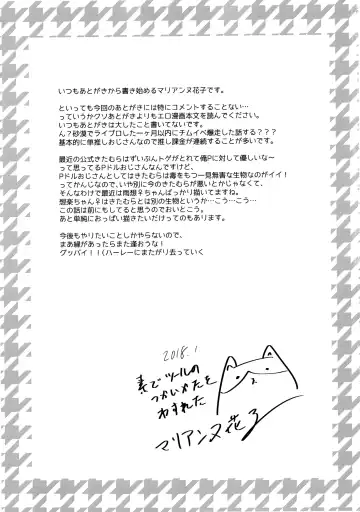 いつもあとがきから書き始めるマリアンヌ花子です。
といっても今回のあとがきには特にコメントすることない…
っていうかクソあとがきよりもエロ漫画本文を読んでください。
いつもあとがきは大したこと書いてないです。
ん？砂漠でライブロした一ヶ月以内にチムイベ爆走した話する？？？
基本的に単推しおじさんなので推し課金が連続することが多いです。
最近の公式きたむらはずいぶんトゲがとれて俺Pに対して優しいな～
って思ってるPドルおじさんなんですけど、
Pドルおじさんとしてはきたむらは毒をもつ一見無害な生物なのがイイ！
ってかんじなので、いや別に今のきたむらが悪いとかじゃなくて、
そんなわけで最近は雨想♀ちゃんばっかり描いてますね。
想楽ちゃん♀はきたむらとは別の生物というか…こう…こう…
この話は前にもしてると思うのでおいとこう。
あと単純におっぱい描きたいだけってのもあります。
今後もやりたいことしかやらないので、
まあ縁があったらまた逢おうな！
グッバイ！！(ハーレーにまたがり去っていく
2018.1
素でツールの
つかいかたを
わすれた
マリアンヌ花子